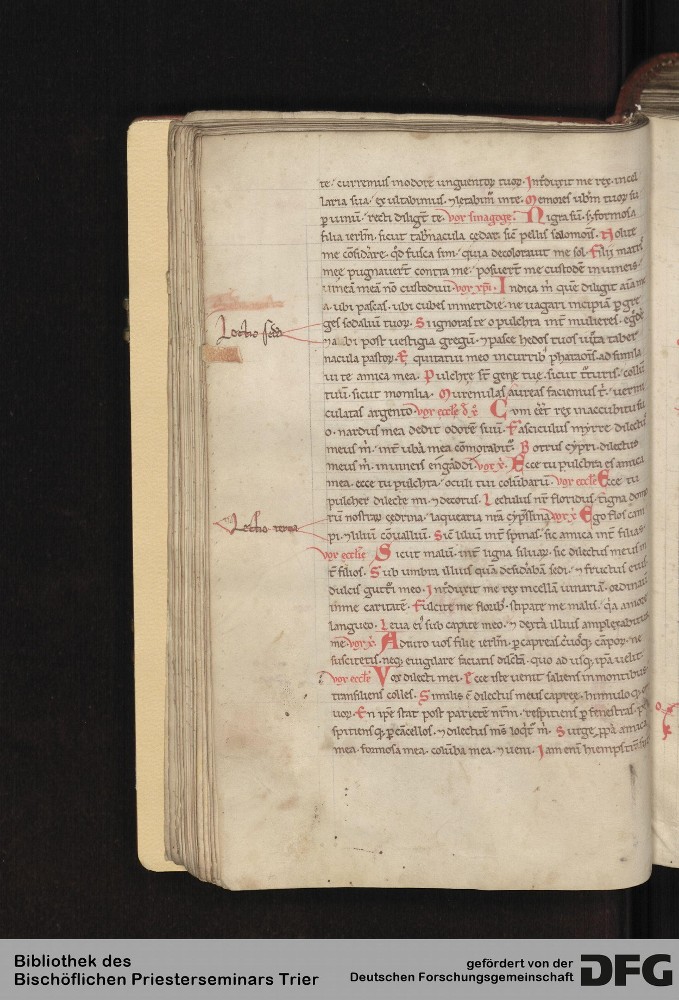 te. curremus in odore unguentoꝝ tuoꝝ. Int̄duxit me rex in cel
laria sua. exultabimus ⁊ letabim᷒ in te. Memores ub̄m tuoꝝ su
ꝑ uinū. recti diligt̄ te. vox sinagoge. Nigra sū. sꝫ formosa
filia ierl̄m. sicut tab̄nacula cedar. sic̄ pellis salomonis. Nolite
me c̄sid̄are. qd̄ fusca sim. quia decolorauit me sol. Filij matris
meę pugnauer̄t contra me. posuer̄t me custodē in uineis.
uineā meā nō custodiui. vox xp̄i. Indica m̄ quē diligit aīa me
a. ubi pascas. ubi cubes in meridie. ne uagari incipiā ꝑ gre
ges sodaliū tuoꝝ. Si ignoras te o pulchra int̄ mulieres. egrede
⁊ abi post uestigia gregū. ⁊ pasce hedos tuos iuxta taber
nacula pastoꝝ. Equitatui meo in currib pharaonis. assimila
ui te amica mea. Pulchrę st̄ genę tuę. sicut t̄turis. collū
tuū. sicut monilia. Murenulas aureas faciemus t̄. uermi
culatas argento. vox eccłe d̄ x̄. Cum ēet rex in accubitu su
o. nardus mea dedit odorē suū. Fasciculus myrre dilectus
meus m̄. int̄ ub̄a mea cōmorabit᷒. Botrus cypri dilectus
meus m̄. in uineis engaddi. vox x̄. Ecce tu pulchra es amica
mea. ecce tu pulchra. oculi tui colūbarū. vox eccłe Ecce tu
pulcher dilecte mi. ⁊ decorus. Lectulus nr̄ floridus. tigna domo
rū nostraꝝ cedrina. laquearia nr̄a cyp̄ssina. vox x̄ Ego flos cam
pi. ⁊ liliū cōualliū. Sic̄ liliū int̄ spinas. sic amica int̄ filias.
vox ecclie Sicut malū int̄ ligna siluaꝝ. sic dilectus meus in
t̄ filios. Sub umbra illius quā desid̄abā sedi. ⁊ fructus eius
dulcis gutt᷒i meo. Int̄duxit me rex in cellā uinariā. ordinauit
in me caritatē. Fulcite me florib᷒. stipate me malis. qa amore
langueo. Leua ei᷒ sub capite meo. ⁊ dext̄a illius amplexabitur
me. vox x̄. Adiuro uos filie ierl̄m. ꝑ capreas ceruosqꝫ campoꝝ. ne
suscitetis. neqꝫ euigilare faciatis dilectā. quo ad usqꝫ ip̄a uelit.
vox eccłe Vox dilecti mei. Ecce iste uenit saliens in montibus
transiliens colles. Similis ē dilectus meus capreę. hinnuloqꝫ cer
uoꝝ. En ip̄e stat post parietē nr̄m. respitiens ꝑ fenestras. pro
spitiens ꝑ cācellos. ⁊ dilectus ms̄ loqt᷒ m̄. Surge ꝓpa amica
mea. formosa mea. colūba mea. ⁊ ueni. Iam enī hiemps t̄nsiit
Lectio scd̄a
Lectio tercia
Bibliothek des
Bischöflichen Priesterseminars Trier
gefördert von der
Deutschen Forschungsgemeinschaft
DFG